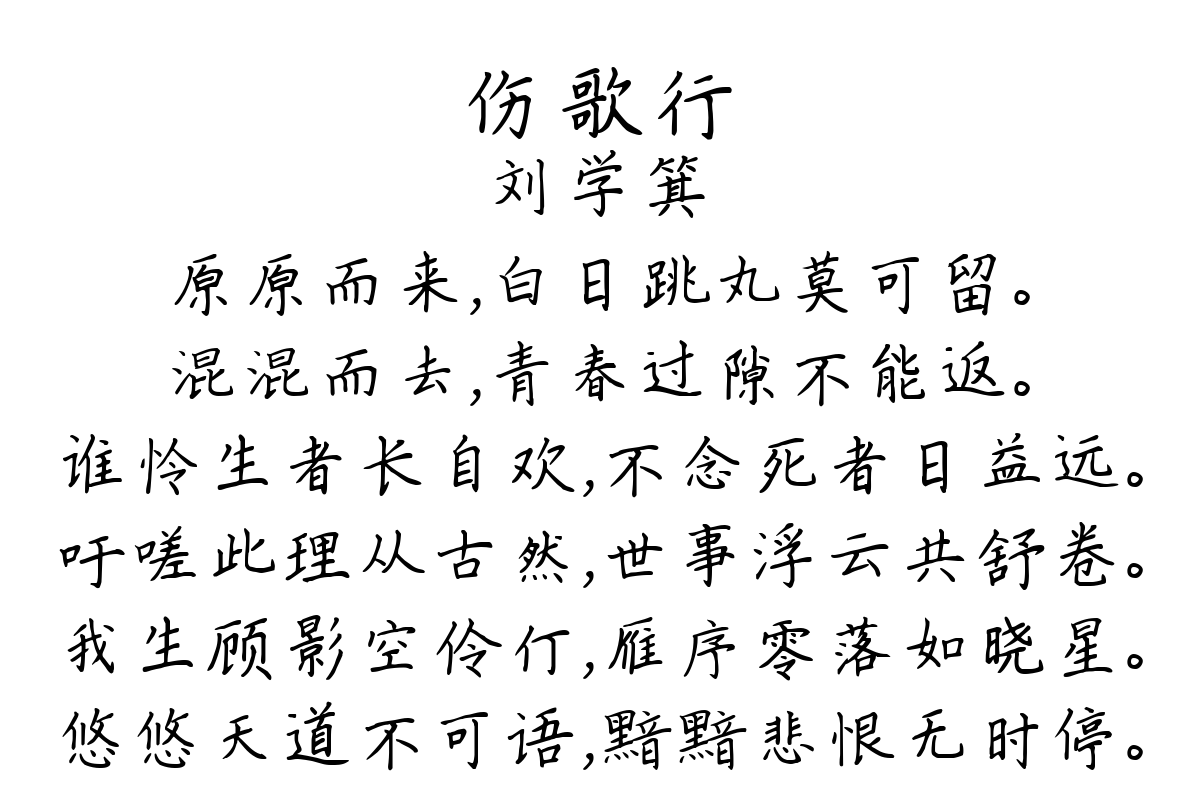 伤歌行
刘学箕
原原而来,白日跳丸莫可留。
混混而去,青春过隙不能返。
谁怜生者长自欢,不念死者日益远。
吁嗟此理从古然,世事浮云共舒卷。
我生顾影空伶仃,雁序零落如晓星。
悠悠天道不可语,黯黯悲恨无时停。